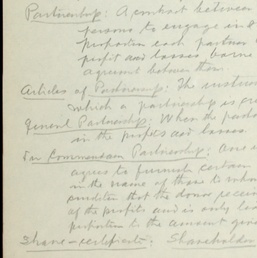 Partnership: A contract between
persons to engage in
proportion each partner
profit and losses borne
agreement between them.
Articles of Partnership: The
which a partnership is
General Partnership: When the
in the profits and losses.
In Commendam Partnership: One
agree to furnish certain
in the name of those to whom
condition that the donor receive
of the profits and is only
proportion to the amount given
Share-certificate: Shareholder